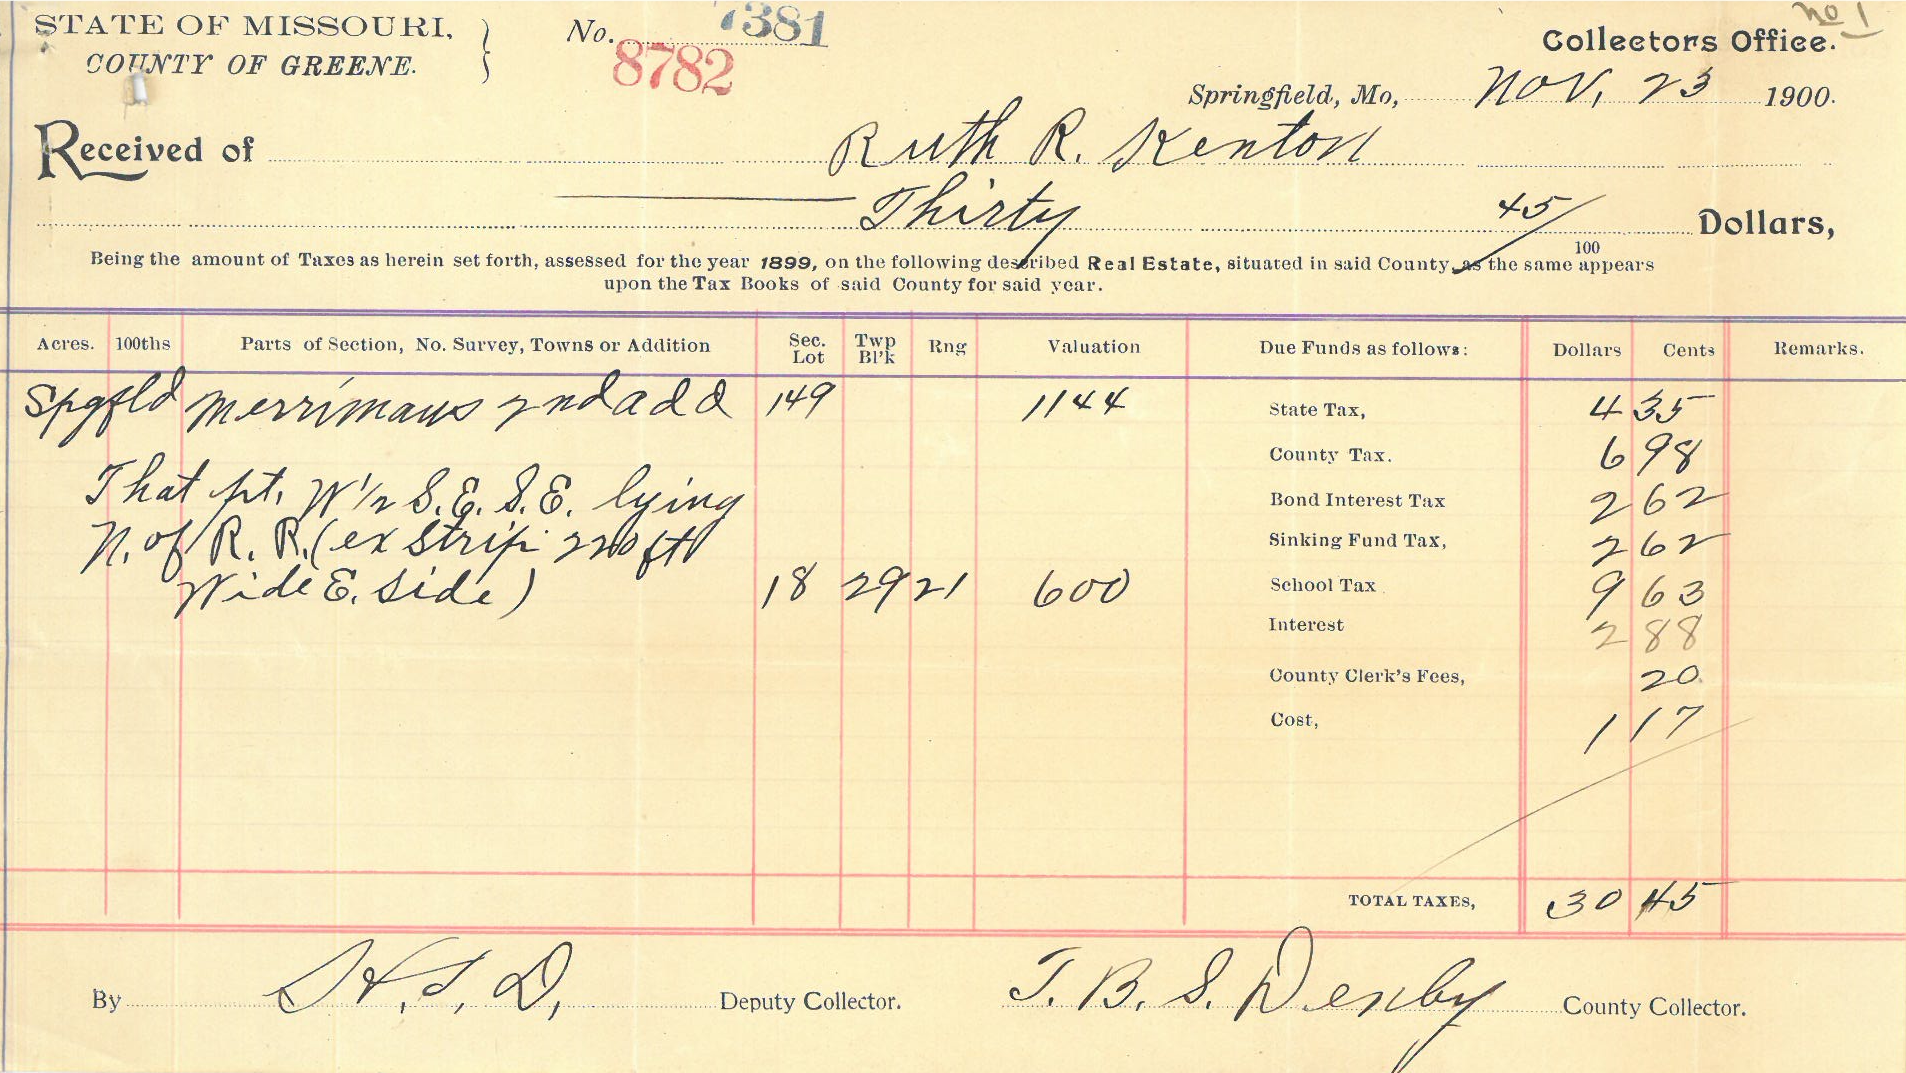 No 1
STATE OF MISSOURI, No. 7381 Collectors Office.
COUNTY OF GREENE. 8782
Springfield, Mo, Nov, 23 1900.
Received of Ruth R. Kenton
Thirty 45/100 Dollars,
Being the amount of Taxes as herein set forth, assessed for the year 1899, on the following described Real Estate, situated in said County, as the same appears
upon the Tax Books of said County for said year.
Acres. 100ths Parts of Section, No. Survey, Towns or Addition Sec. Lot Twp Bl'k Rng Valuation Due Funds as follows: Dollars Cents Remarks.
Spgfld Merrimans 2nd add 149 1144 State Tax, 4 35
County Tax. 6 98
That pt. W 1/2 S.E. S.E. lying Bond Interest Tax 2 62
N. of R. R. (ex Strip 220 ft Sinking Fund Tax, 2 62
Wide E. Side) 18 29 21 600 School Tax 9 63
Interest 2 88
County Clerk's Fees, 20
Cost, 1 17
TOTAL TAXES, 30 45
By Deputy Collector. T. B. S. Denby County Collector.